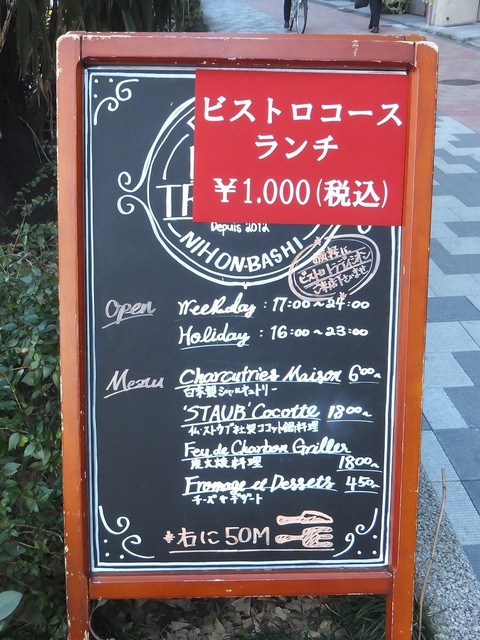 ビストロコース
ランチ
¥1.000(税込)
Depuis 2012
NIHON-BASHI
お気軽に
ビストロ トライオン
ご来店下さいませ
Open
Weekday : 17:00～24:00
Holiday : 16:00～23:00
Menu
Charcutries Maison 600～
自家製シャルキュトリー
'STAUB' Cocotte 1800～
仏・ストウブ社製ココット鍋料理
Feu de Charbon Griller
炭火焼料理 1800～
Fromage et Dessets 450～
チーズ&デザート
*右に50M